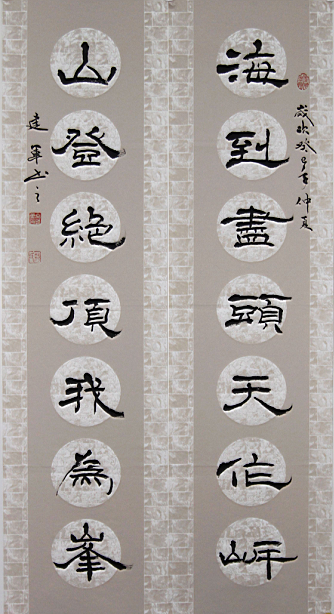 海到盡頭天作岸
歲次癸巳年仲夏
山登絶頂我為峯
建軍书之